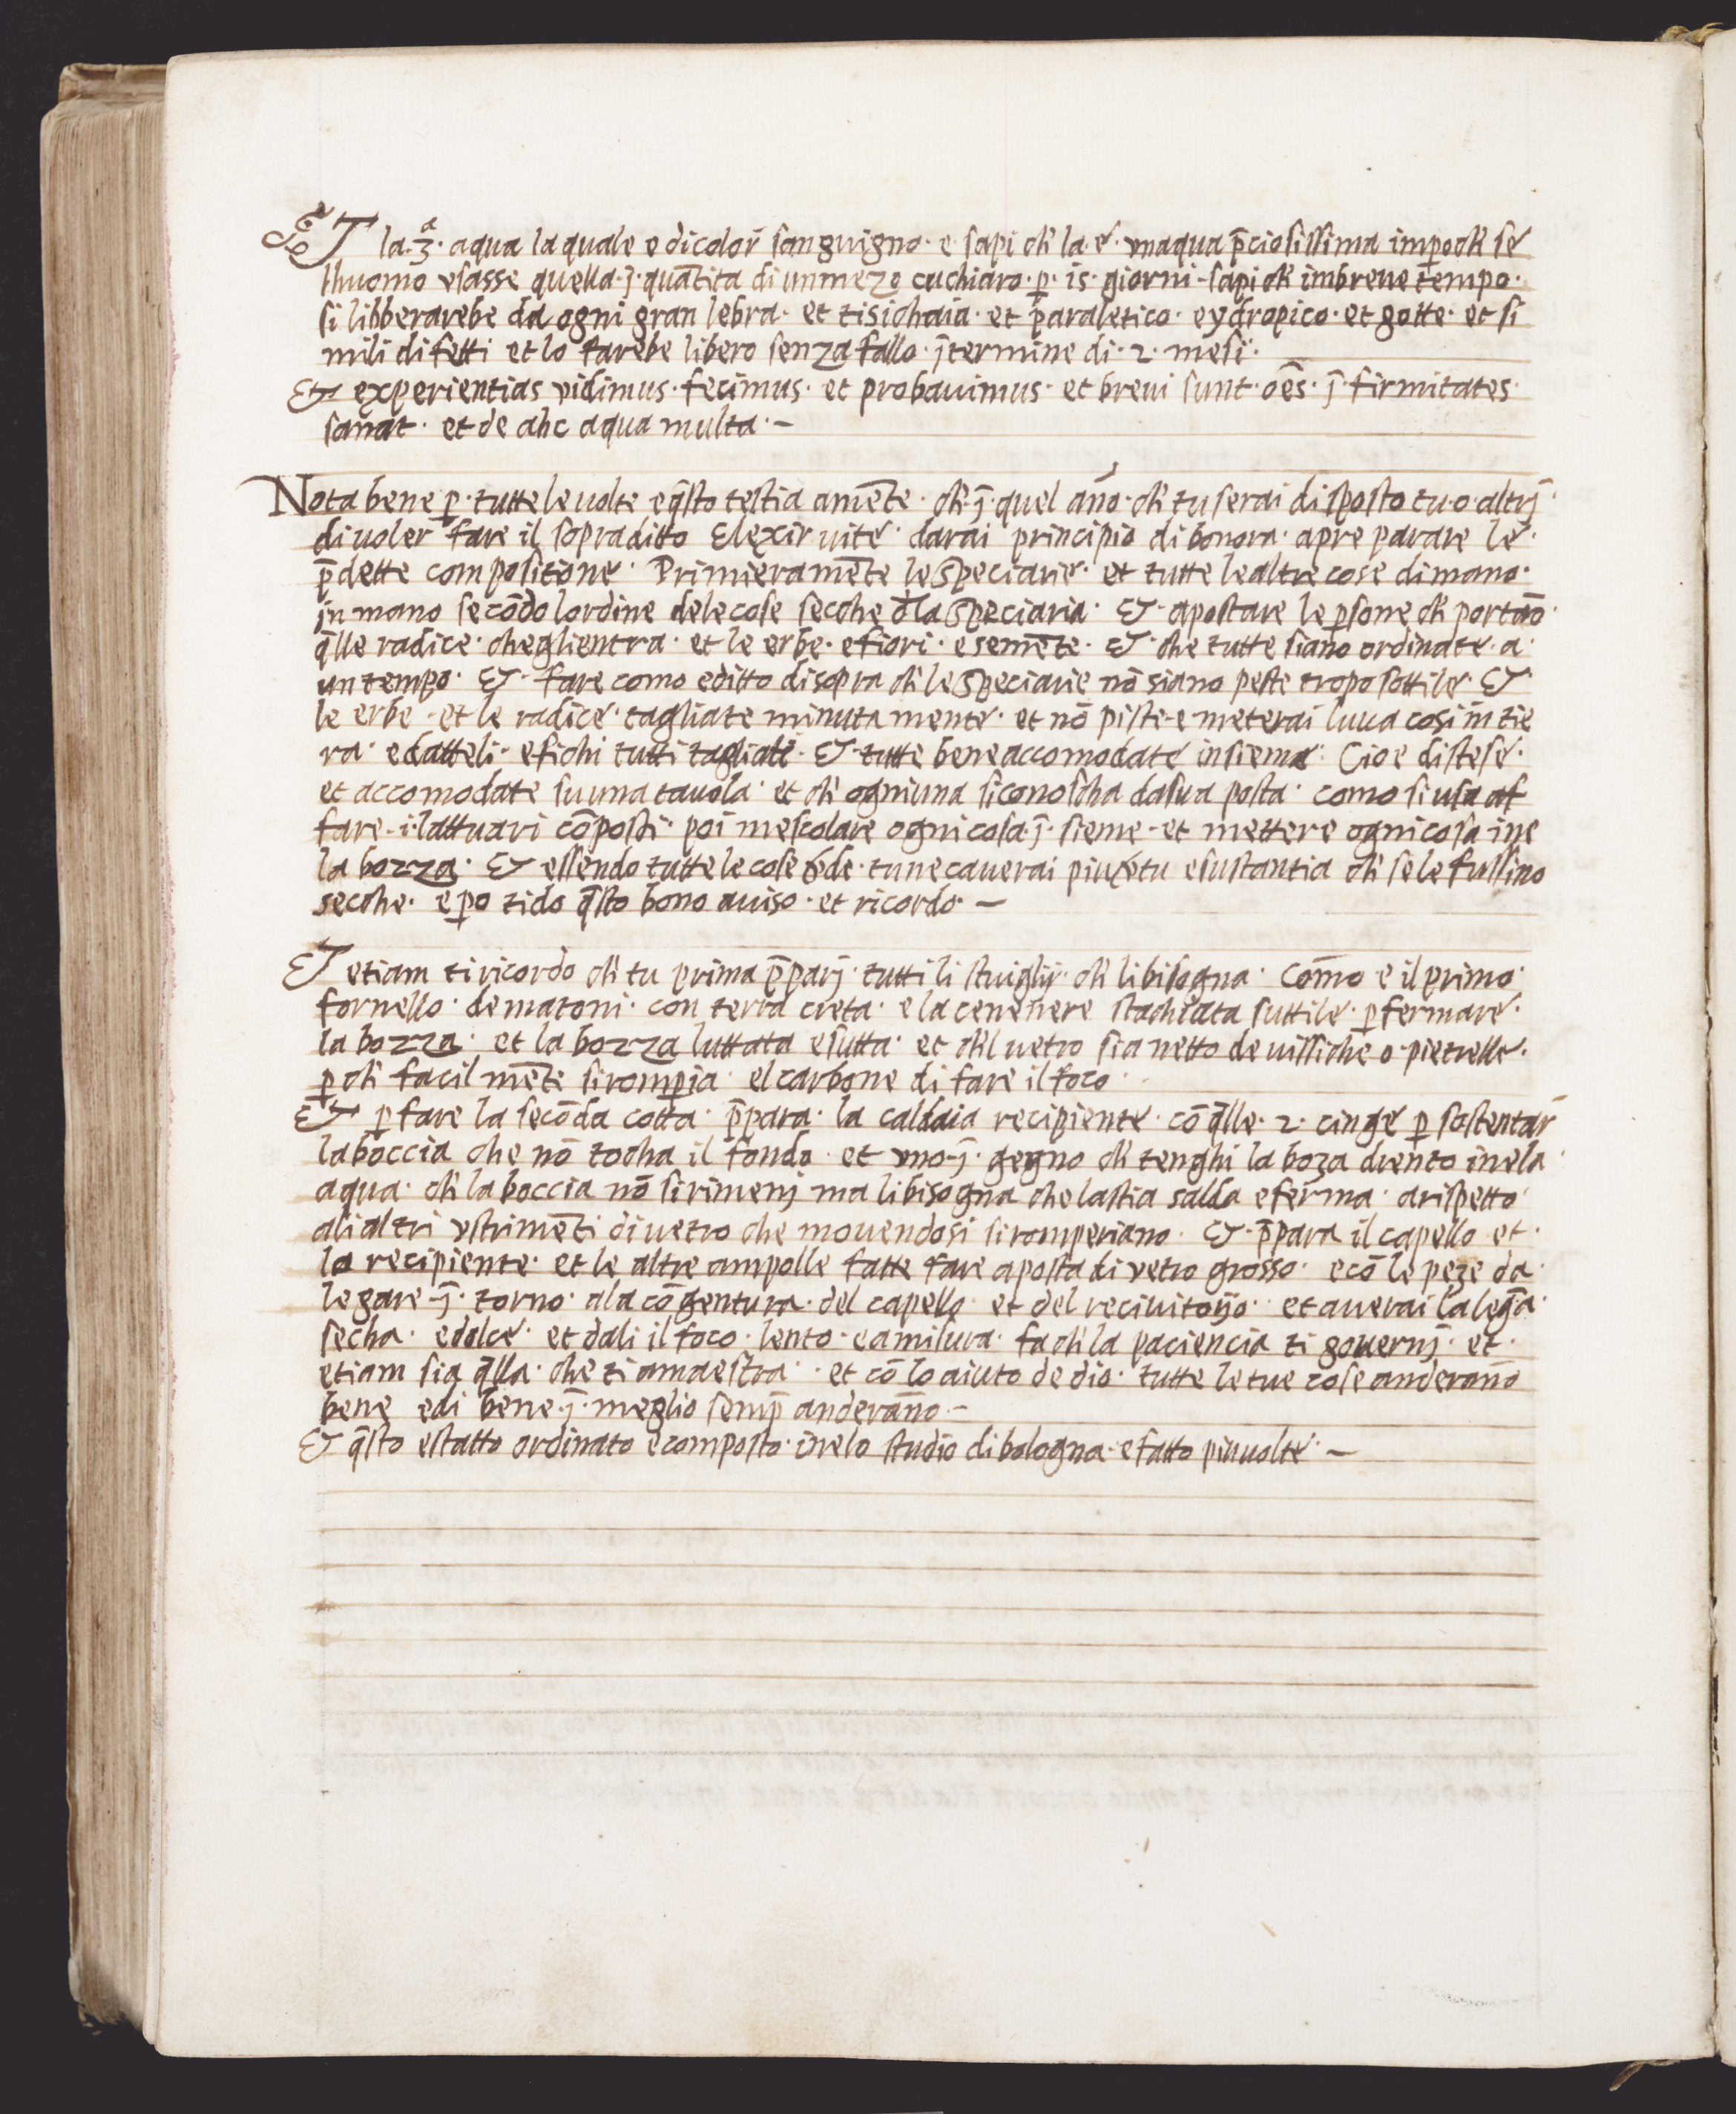 ET la .3ª. aqua la quale e di color̄ sanguigno · e sapi ch' la · e · vnaqua p̄ciosissima impoch' se
lhuomo vsasse quella · j̄ · quātita di un mezo cuchiaro · ꝑ · is · giorni · sapi ch' imbreue tempo ·
si libberarebe da ogni gran lebra · et tisichaia · et paraletico · e ydropico · et gotte · et si
mili difetti et lo farebe libero senza fallo · j̄ termine di · 2 · mesi ·
Et experientias vidimus · fecimus · et probauimus · et breui sunt · oēs · j̄ · firmitates ·
sanat · et de ahc aqua multa · –
Nota bene ꝑ · tutte le uolte e q̄sto te stia a mēte · ch' · j̄ · quel āno · ch' tu serai disposto tu · o · altrj ·
di uoler̄ fare il sopraditto Elexir uite · darai principio di bonora · a pre parare le ·
p̄dette compositione · Primieramēte le speciarie · et tutte le altre cose di mano ·
in mano secōdo lordine dele cose secche d'la speciaria · Et · apostare le ꝑsone ch' portāo ·
q̄lle radice · che gli entra · et le erbe · e fiori · e semēte · Et · che tutte siano ordinate · a ·
un tempo · Et · fare como e ditto di sopra ch' le speciarie nō siano peste tropo sottile · Et
le erbe · et le radice · tagliate minuta mente · et nō piste · e meterai luua cosi in tie
ra · e datteli · e fichi tutti tagliati · Et · tutte bene accomodate insieme · Cioe distese ·
et accomodate su una tauola · et ch' ogniuna si conoscha da sua posta · como si usa af
fare · i · lattuari cōposti · poi mescolare ogni cosa · j̄ · sieme · et mettere ogni cosa ine
la bozza · Et essendo tutte le cose v̄de · tu ne cauerai piu v̄tu e sustantia ch' se le fussino
secche · e ꝑo ti do q̄sto bono auiso · et ricordo · –
ET etiam ti ricordo ch' tu prima p̄parj · tutti li stuiglij · ch' li bisogna · Como e il primo ·
fornello · de matoni · con terra creta · e la cenenere stachiata suttile · ꝑ fermare ·
la bozza · et la bozza luttata e sutta · et ch'l uetro sia netto de uissiche o · pietrelle ·
ꝑ ch' facil mēte si rompia · el carbone di fare il foco ·
ET ꝑ fare la secōda cotta · p̄para · la caldaia recipiente · cō q̄lle · 2 · cinge ꝑ sostentar̄
la boccia che nō tocha il fondo · et vno · j̄ · gegno ch' tenghi la boza drento in ela ·
aqua · ch' la boccia nō si rimenj ma li bisogna che la stia salda e ferma · a rispetto
ali altri vstrimēti di uetro che mouendosi si romperiano · Et · p̄para il capello et ·
la recipiente · et le altre ampolle fatte fare a posta di vetro grosso · e cō le peze da ·
legare · j̄ · torno · ala cōgentura · del capello · et del reciuitorjo · et auerai la legn̄a ·
secha · e dolce · et dali il foco · lento · e a misura · fa ch' la paciencia ti gouernj · et ·
etiam sia q̄lla · che ti amaestra · · et cō lo aiuto de dio · tutte le tue cose anderanno
bene e di bene · j̄ · meglio semp̄ anderanno · –
Et q̄sto e statto ordinato e composto · in elo studio di bologna · e fatto piu uolte · –